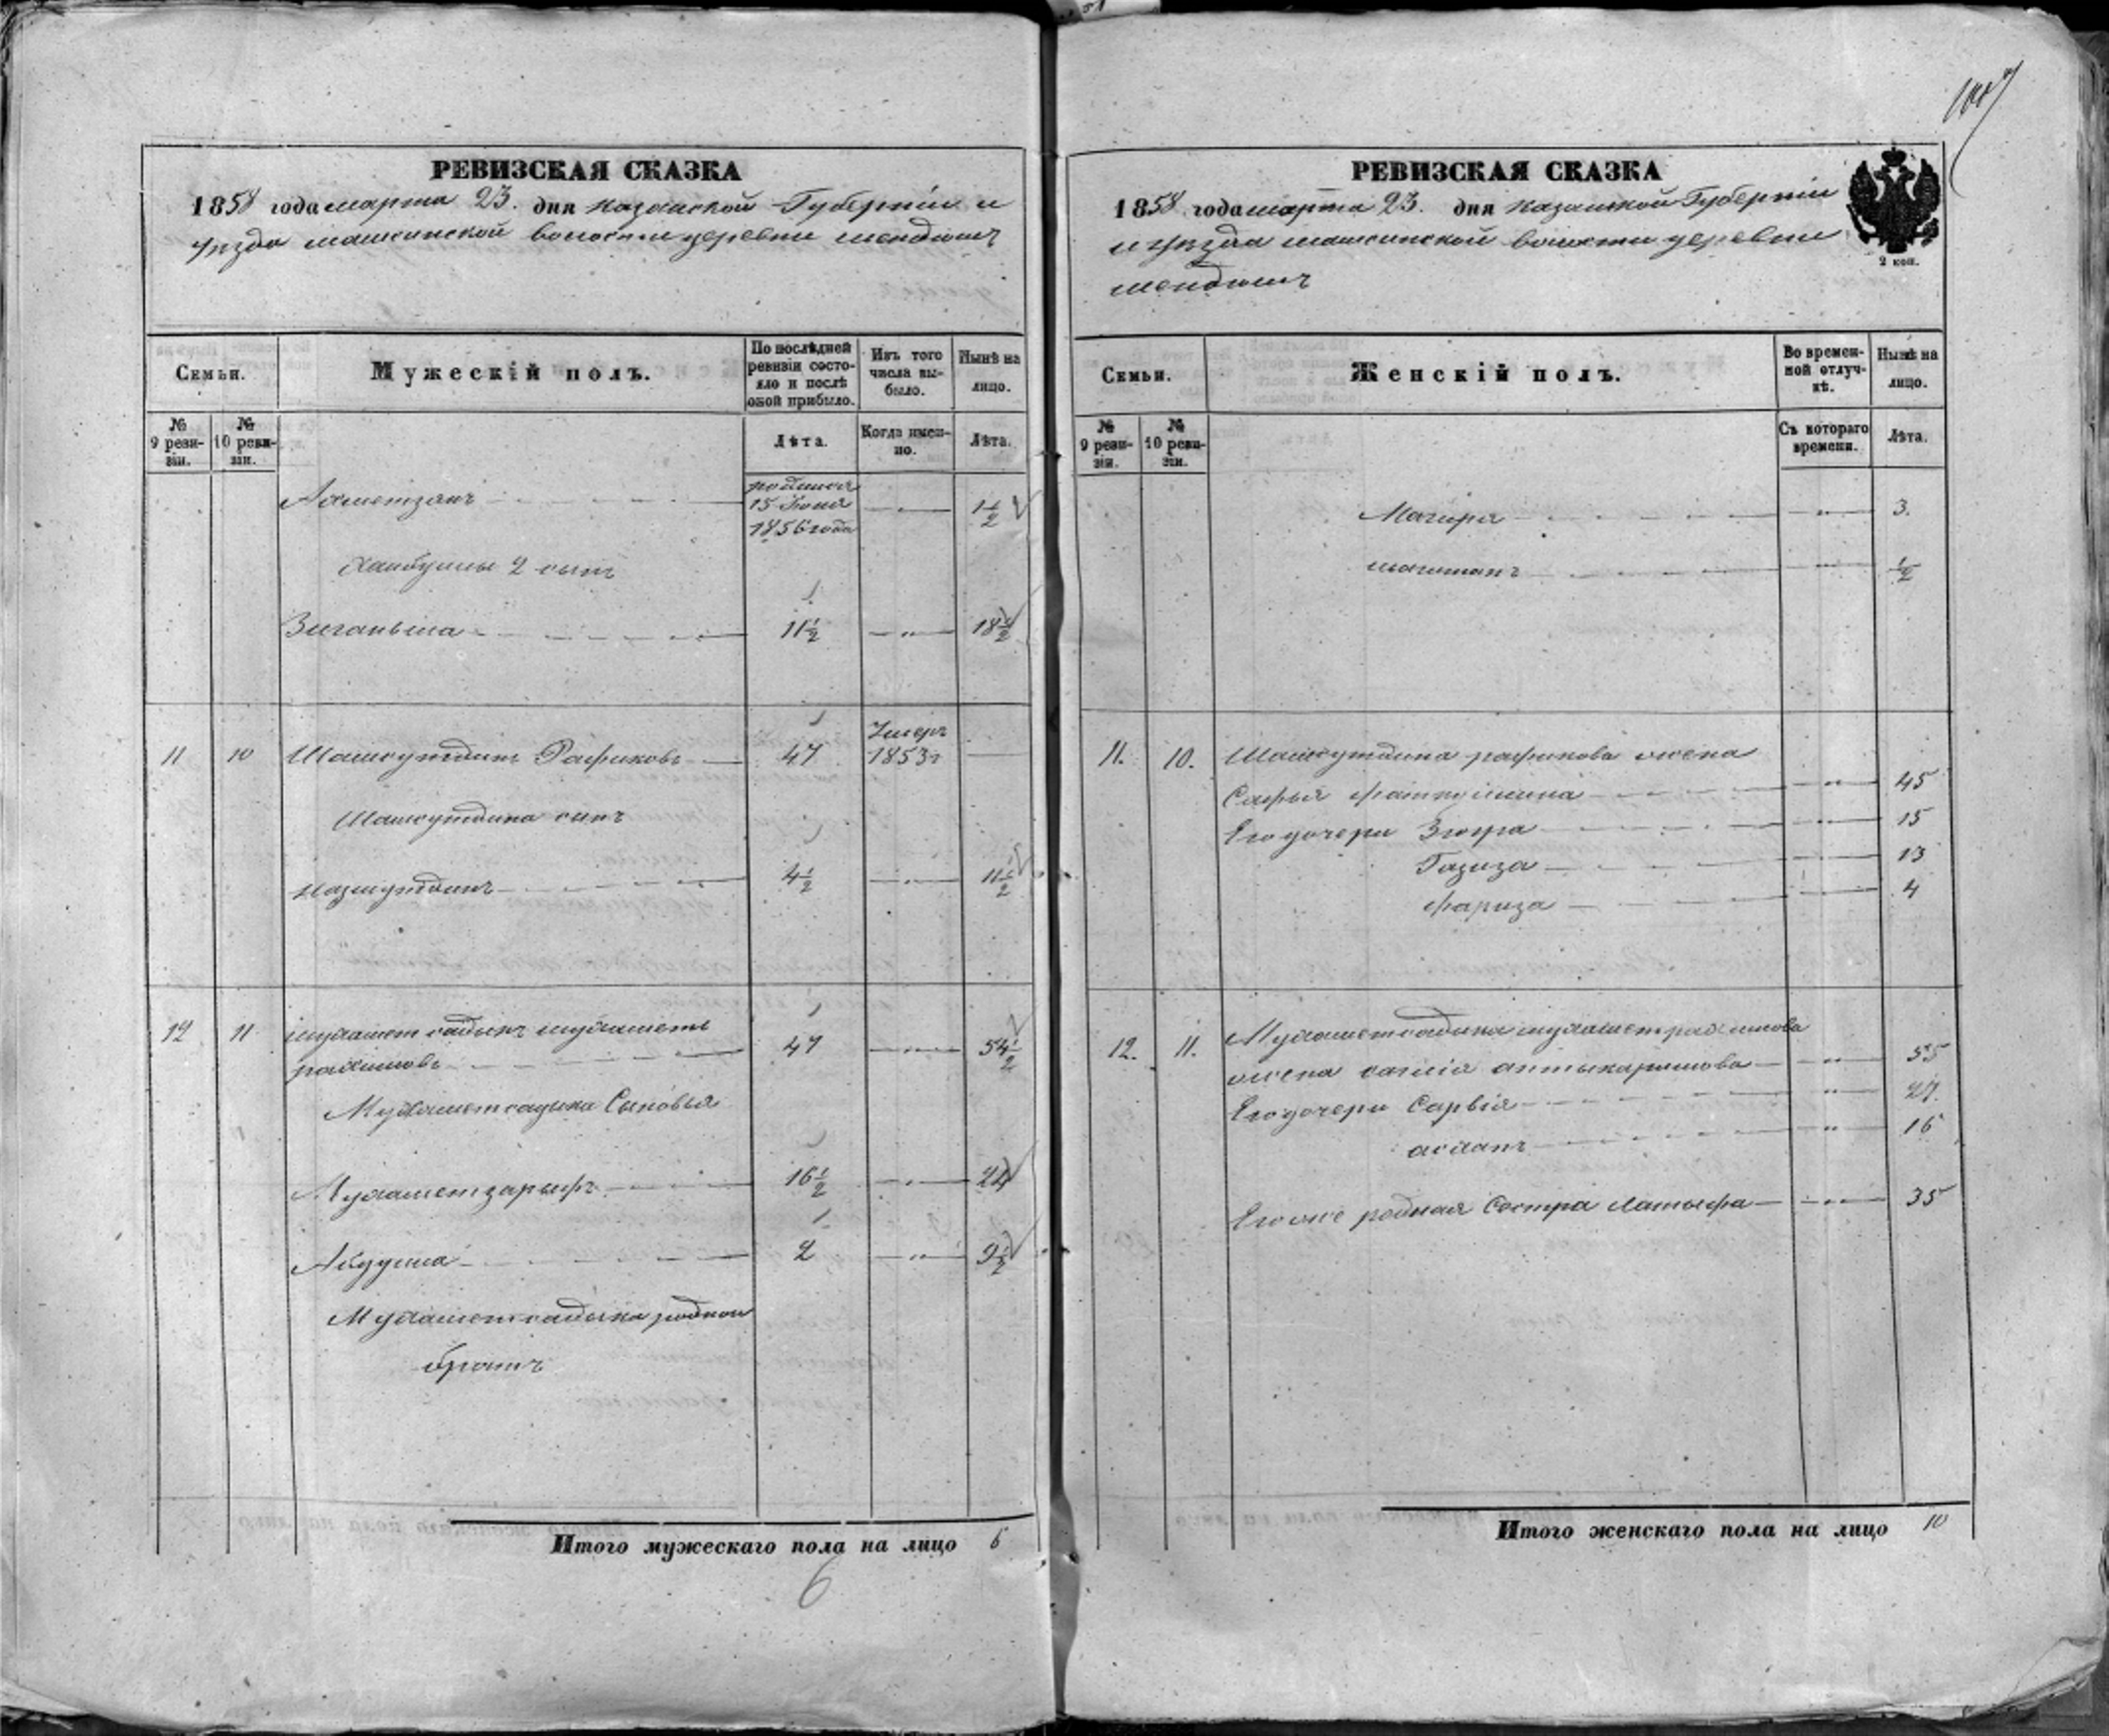 РЕВИЗСКАЯ СКАЗКА
1858 года марта 23. дня Казанской Губерніи и
уѣзда машкинской волости деревни мендюшъ
Семьи.
Мужескій полъ.
По послѣдней ревизіи состояло и послѣ оной прибыло.
Изъ того числа выбыло.
Нынѣ на лицо.
№ 9 ревизіи.
№ 10 ревизіи.
Лѣта.
Когда именно.
Лѣта.
Ахметзянъ родился 15 Іюня 1856 года — " — 1 1/2
2 сынъ
Зиганьша 11 1/2 — " — 18 1/2
11 10 Шамсутдинъ Рафиковъ 47 Умеръ 1853 г —
Шамсутдина сынъ
Назмутдинъ 4 1/2 — " — 11 1/2
12 11 мухамет садыкъ мухаметь
рахимовъ 47 — " — 54 1/2
Мухаметсадыка Сыновья
Мухаметзарыфъ 16 1/2 — " — 24
Абдулла 2 — " — 9 1/2
Мухаметсадыка родной
братъ
Итого мужескаго пола на лицо 6
6
РЕВИЗСКАЯ СКАЗКА
1858 года марта 23. дня Казанской Губерніи
и уѣзда машкинской волости деревни
мендюшъ
2 коп.
Семьи.
Женскій полъ.
Во временной отлучкѣ.
Нынѣ на лицо.
№ 9 ревизіи.
№ 10 ревизіи.
Съ котораго времени.
Лѣта.
Магира — " — 3.
— " — 1/2
11. 10. Шамсутдина рафикова жена
Сафья фаткуллина — " — 45
Его дочери Зюгра — " — 15
Газиза — " — 13
фариза — " — 4
12. 11. Мухаметсадыка мухаметрахимова
жена — " — 55
Его дочери Сарвія — " — 27.
— " — 16
Его же родная Сестра Латыфа — " — 35
Итого женскаго пола на лицо 10